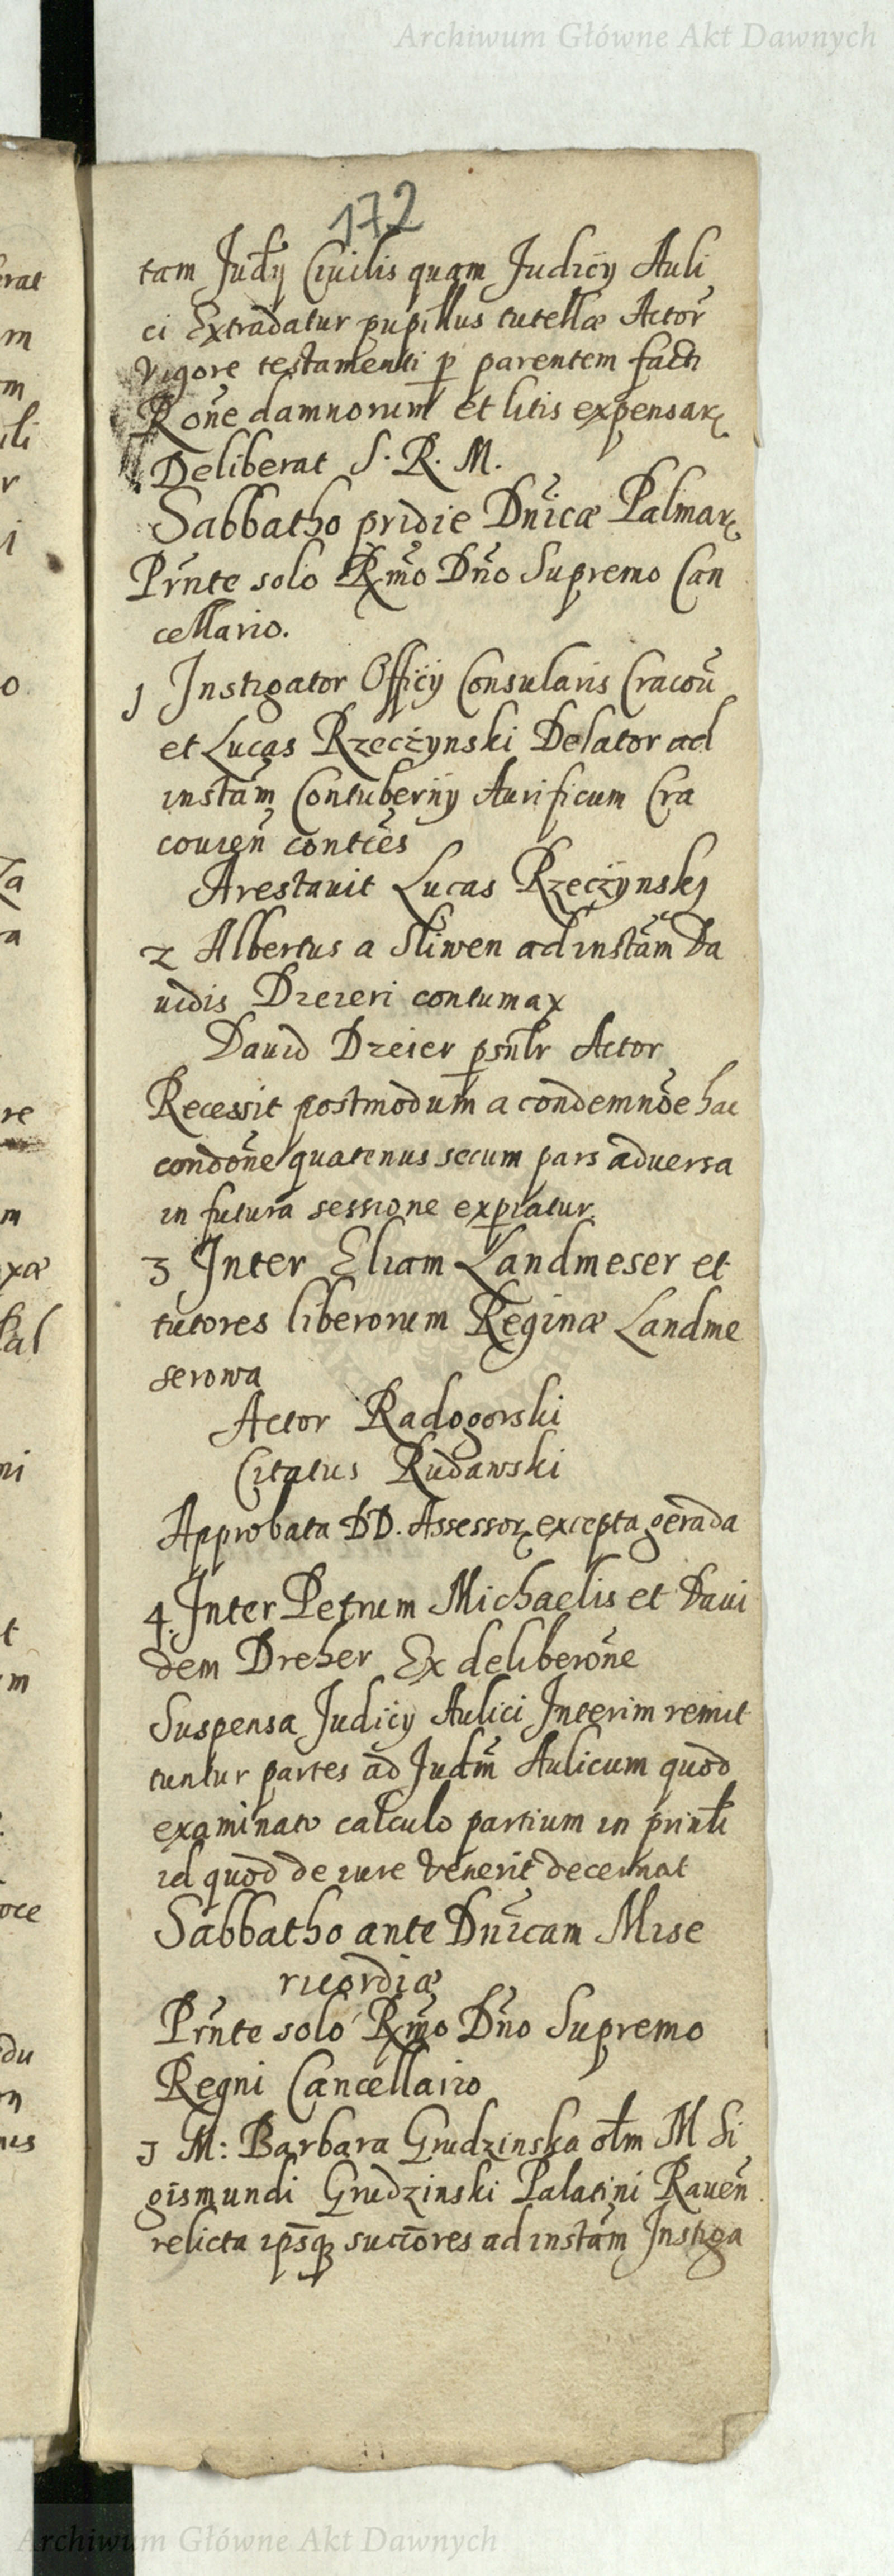 Archiwum Główne Akt Dawnych
172
tam Judy Ciuilis quam Judicÿ Auli
ci Extradatur pupillus tutellæ Actor
vigore testamenti p parentem facti
Rone damnorum et litis expensar
Deliberat S. R. M.
Sabbatho pridie Dnicæ Palmar
Prnte solo Rmo Dno Supremo Can
cellario.
1 Instigator Officÿ Consularis Cracou
et Lucas Rzeczynski Delator ad
instam Contubernÿ Aurificum Cra
couien conties
Arestauit Lucas Rzeczynskj
2 Albertus a Sliwen ad instam Da
uidis Dreieri contumax
Dauid Dreier psnlr Actor
Recessit postmodum a condemnoe hac
condone quatenus secum pars aduersa
in futura sessione expiatur.
3 Inter Eliam Landmeser et
tutores liberorum Reginæ Landme
serowa
Actor Radogorski
Citatus Rudawski
Approbata DD. Assessor excepta gerada
4. Inter Petrum Michaelis et Daui
dem Dreher Ex deliberone
Suspensa Judicÿ Aulici Interim remit
tuntur partes ad Judm Aulicum quod
examinato calculo partium in printi
id quod de iure venerit decernat
Sabbatho ante Dnicam Mise
ricordiæ
Prnte solo Rmo Dno Supremo
Regni Cancellario
1 M: Barbara Grudzinska olm M Si
gismundi Grudzinski Palatini Rauen
relicta ipsq succores ad instam Instiga
Archiwum Główne Akt Dawnych